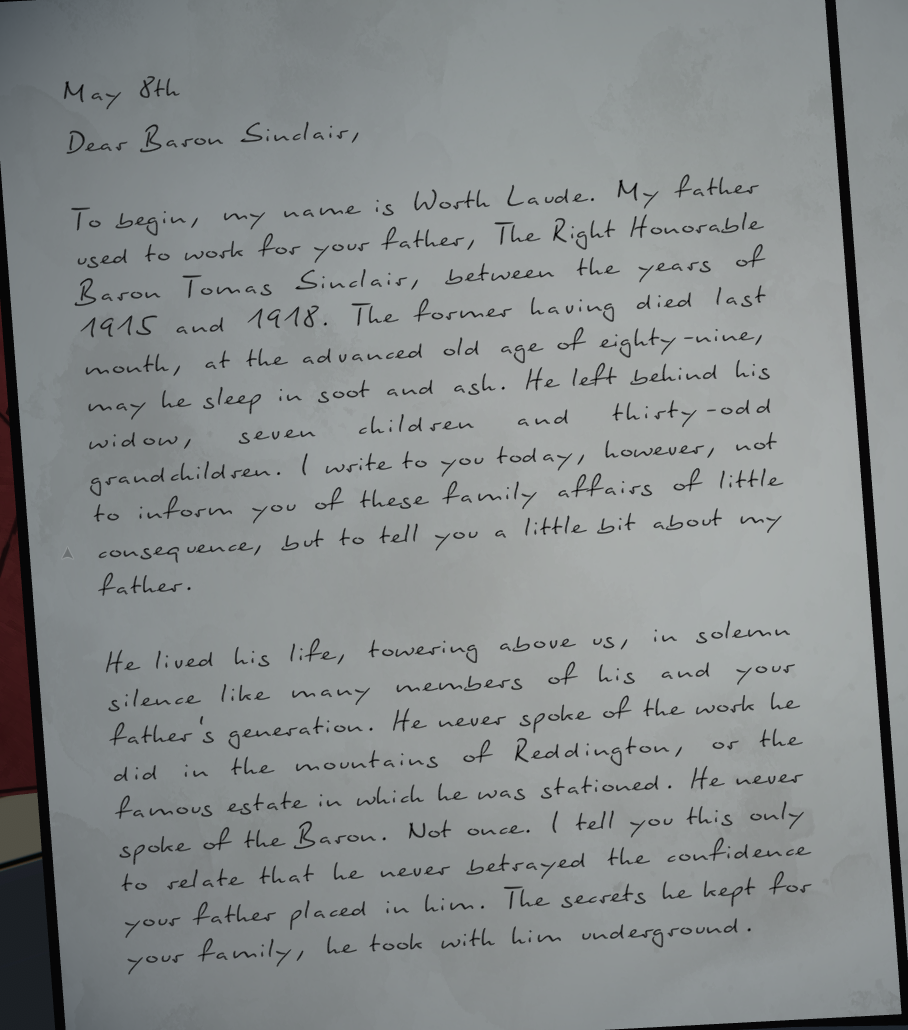 May 8th
Dear Baron Sinclair,
To begin, my name is Worth Laude. My father
used to work for your father, The Right Honorable
Baron Tomas Sinclair, between the years of
1915 and 1918. The former having died last
month, at the advanced old age of eighty-nine,
may he sleep in soot and ash. He left behind his
widow, seven children and thirty-odd
grandchildren. I write to you today, however, not
to inform you of these family affairs of little
consequence, but to tell you a little bit about my
father.
He lived his life, towering above us, in solemn
silence like many members of his and your
father's generation. He never spoke of the work he
did in the mountains of Reddington, or the
famous estate in which he was stationed. He never
spoke of the Baron. Not once. I tell you this only
to relate that he never betrayed the confidence
your father placed in him. The secrets he kept for
your family, he took with him underground.